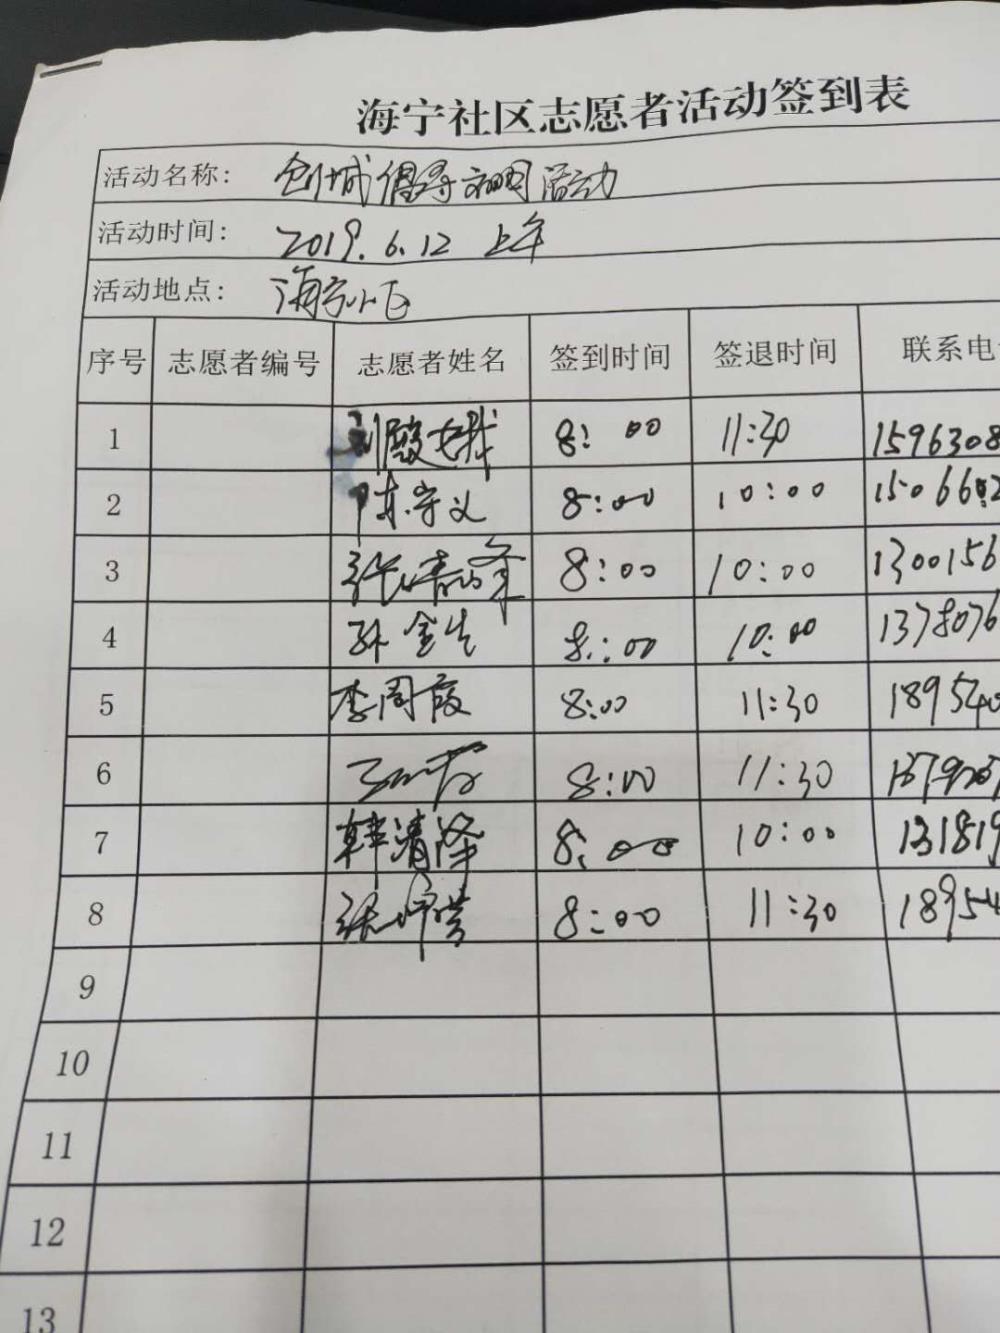 海宁社区志愿者活动签到表
活动名称: 创城倡导 活动
活动时间: 2019.6.12 上午
活动地点: 海宁小区
序号 志愿者编号 志愿者姓名 签到时间 签退时间 联系电
1 8:00 11:30 1596308
2 陈守义 8:00 10:00 150660
3 8:00 10:00 1300156
4 孙金生 8:00 10:00 1378076
5 李周霞 8:00 11:30 189540
6 8:00 11:30
7 韩清泽 8:00 10:00 131819
8 8:00 11:30 18954
9
10
11
12
13